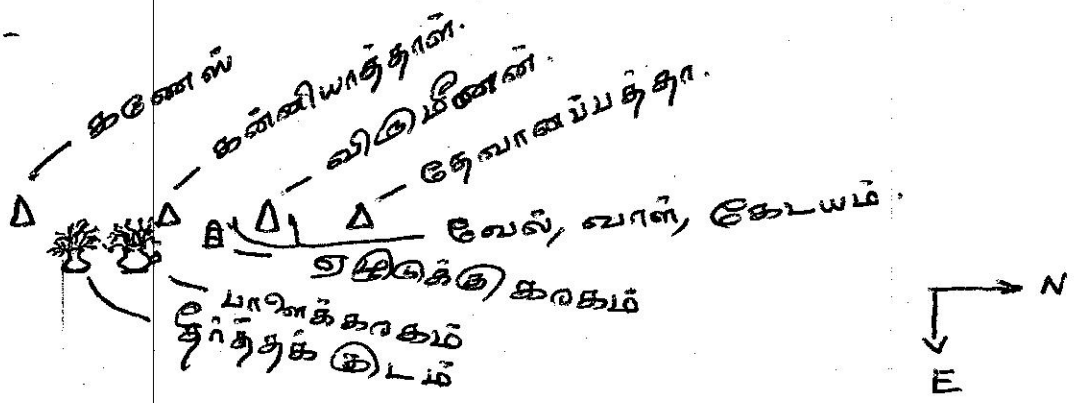 கணேஸ்
கன்னியாத்தாள்.
விருமீனன்.
தேவானப்பத்தா.
வேல், வாள், கேடயம்.
ஏழடுக்கு கரகம்
பாளைக்கரகம்
தீர்த்தக் குடம்
N
E